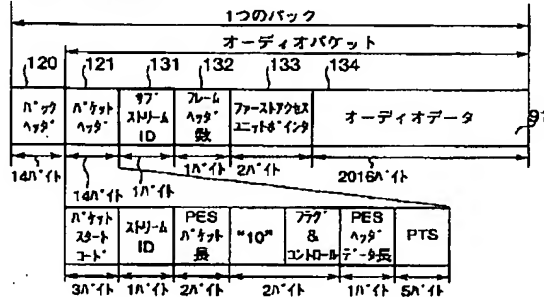 1つのパック
オーディオパケット
120 121 131 132 133 134
パック
ヘッダ
パケット
ヘッダ
サブ
ストリーム
ID
フレーム
ヘッダ
数
ファーストアクセス
ユニットポインタ
オーディオデータ
91
14バイト
14バイト
1バイト
1バイト
2バイト
2016バイト
パケット
スタート
コード
ストリーム
ID
PES
パケット
長
"10"
フラグ
&
コントロール
PES
ヘッダ
データ長
PTS
3バイト
1バイト
2バイト
2バイト
1バイト
5バイト